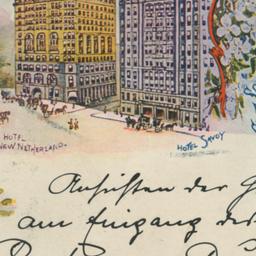 HOTEL
NEW NETHERLAND.
HOTEL SAVOY
Ansichten der
am Eingang des